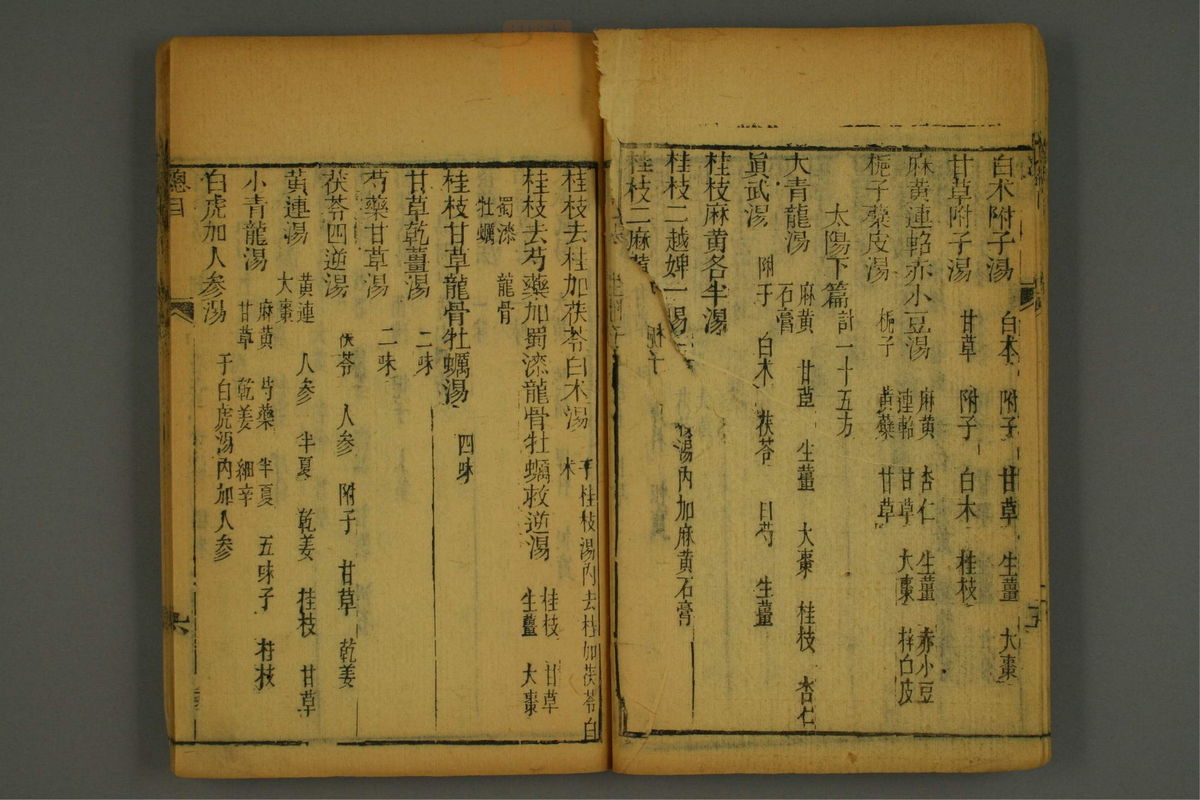 白朮附子湯 白朮 附子 甘草 生薑 大棗
甘草附子湯 甘草 附子 白朮 桂枝
麻黃連軺赤小豆湯 麻黃 杏仁 生薑 赤小豆
連軺 甘草 大棗 梓白皮
梔子蘗皮湯 梔子 黃蘗 甘草
太陽下篇 計一十五方
大青龍湯 麻黃 甘草 生薑 大棗 桂枝 杏仁
石膏
眞武湯 附子 白朮 茯苓 白芍 生薑
桂枝麻黃各半湯
桂枝二越婢一湯 湯內加麻黃石膏
桂枝二麻黃
桂枝去桂加茯苓白朮湯 于桂枝湯內去桂加茯苓白
朮
桂枝去芍藥加蜀漆龍骨牡蠣救逆湯 桂枝 甘草
生薑 大棗
蜀漆 龍骨
牡蠣
桂枝甘草龍骨牡蠣湯 四味
甘草乾薑湯 二味
芍藥甘草湯 二味
茯苓四逆湯 茯苓 人參 附子 甘草 乾姜
黃連湯 黃連 人參 半夏 乾姜 桂枝 甘草
大棗
小青龍湯 麻黃 芍藥 半夏 五味子 桂枝
甘草 乾姜 細辛
白虎加人參湯 于白虎湯內加人參
總目
六